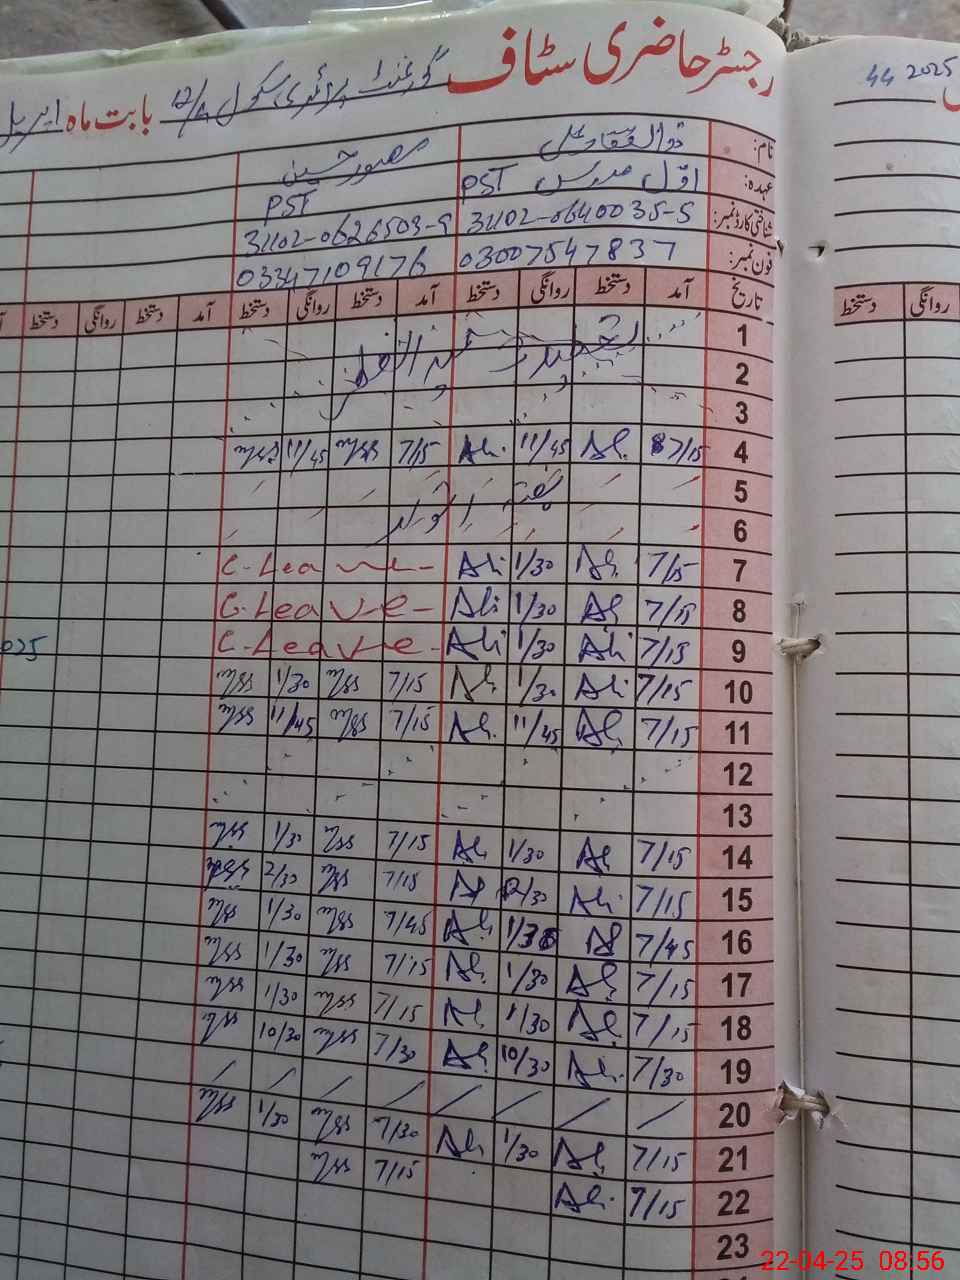 رجسٹر حاضری سٹاف گورنمنٹ پرائمری سکول 12/A بابت ماہ اپریل
44 2025
نام: ذوالفقار علی منصور حسین
عہدہ: اوّل مدرس PST PST
شناختی کارڈ نمبر: 31102-0640035-5 31102-0626503-9
فون نمبر: 03007547837 03347109176
تاریخ آمد دستخط روانگی دستخط آمد دستخط روانگی دستخط آمد دستخط روانگی دستخط
دستخط روانگی
1 تعطیلات عید الفطر
2
3
4 7/15 Ali 11/45 Ali 7/15 mss 11/45 mss
5 ہفتہ
6 اتوار
7 7/15 Ali 1/30 Ali C-Leave
8 7/15 Ali 1/30 Ali C-Leave
9 7/15 Ali 1/30 Ali C-Leave
025
10 7/15 Ali 1/30 Ali 7/15 mss 1/30 mss
11 7/15 Ali 11/45 Ali 7/15 mss 11/45 mss
12
13
14 7/15 Ali 1/30 Ali 7/15 mss 1/30 mss
15 7/15 Ali 2/30 Ali 7/15 mss 2/30 mss
16 7/45 Ali 1/30 Ali 7/45 mss 1/30 mss
17 7/15 Ali 1/30 Ali 7/15 mss 1/30 mss
18 7/15 Ali 1/30 Ali 7/15 mss 1/30 mss
19 7/30 Ali 10/30 Ali 7/30 mss 10/30 mss
20
21 7/15 Ali 1/30 Ali 7/30 mss 1/30 mss
22 7/15 Ali 7/15 mss
23
22-04-25 08:56